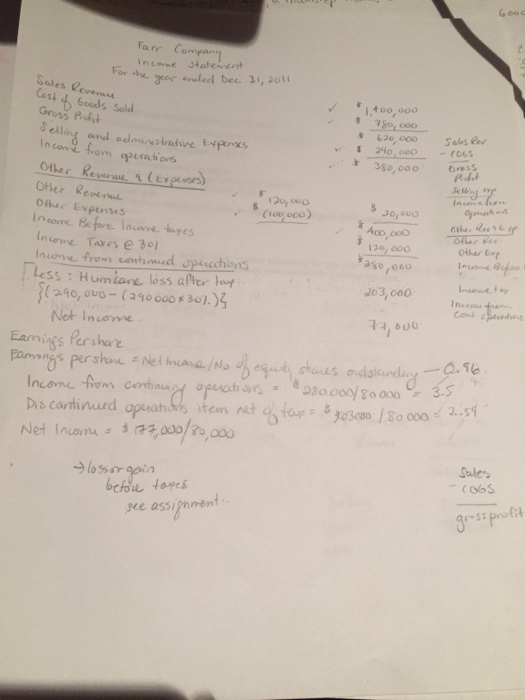 Farr Company
Income Statement
For the year ended Dec. 31, 2011
Sales Revenue $ 1,400,000
Cost of Goods Sold $ 780,000
Gross Profit $ 620,000
Selling and administrative Expenses $ 240,000
Income from operations $ 380,000
Other Revenue & (Expenses)
Other Revenue $ 120,000
Other Expenses $ (100,000) $ 20,000
Income Before Income taxes $ 400,000
Income Taxes @ 30% $ 120,000
Income from continued operations $ 280,000
Less: Hurricane loss after tax
{(290,000 - (290000 x 30%)} 203,000
Net Income 77,000
Earnings Pershare
Earnings pershare = Net Income / No of equity shares outstanding — 0.96
Income from continuing operations = $ 280000/80000 = 3.5
Discontinued operations item net of tax = $ 203000 / 80000 = 2.54
Net Income = $ 177,000/80,000
→ loss or gain
before taxes
see assignment..
Sales Rev
- COGS
Gross
Profit
Selling exp
Other Rev & Exp
Other Rev
Other Exp
Income Before
Income tax
Income from
cont operations
Sales
- COGS
gross profit